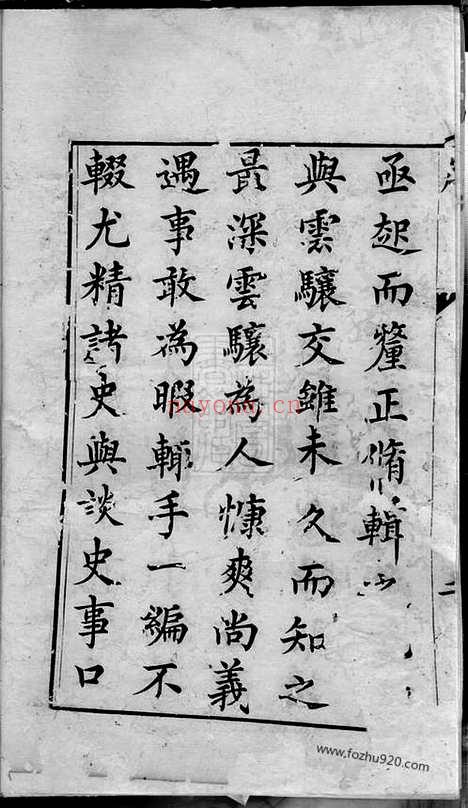 亟起而釐正脩輯
與雲驤交雖未久而知之
最深雲驤為人慷爽尚義
遇事敢為暇輒手一編不
輟尤精諸史與談史事口
二
nayona.cn
www.fozhu920.com